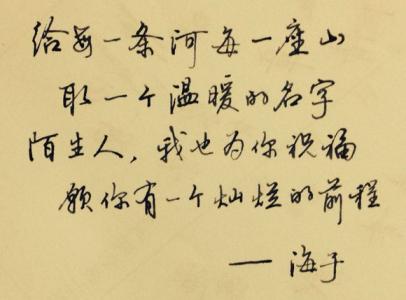 给每一条河每一座山
取一个温暖的名字
陌生人，我也为你祝福
愿你有一个灿烂的前程
——海子